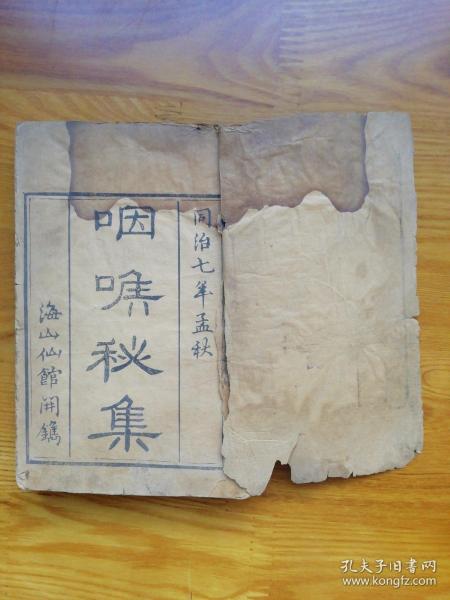 同治七年孟秋
咽喉秘集
海山仙館開鐫
孔夫子旧书网
www.kongfz.com